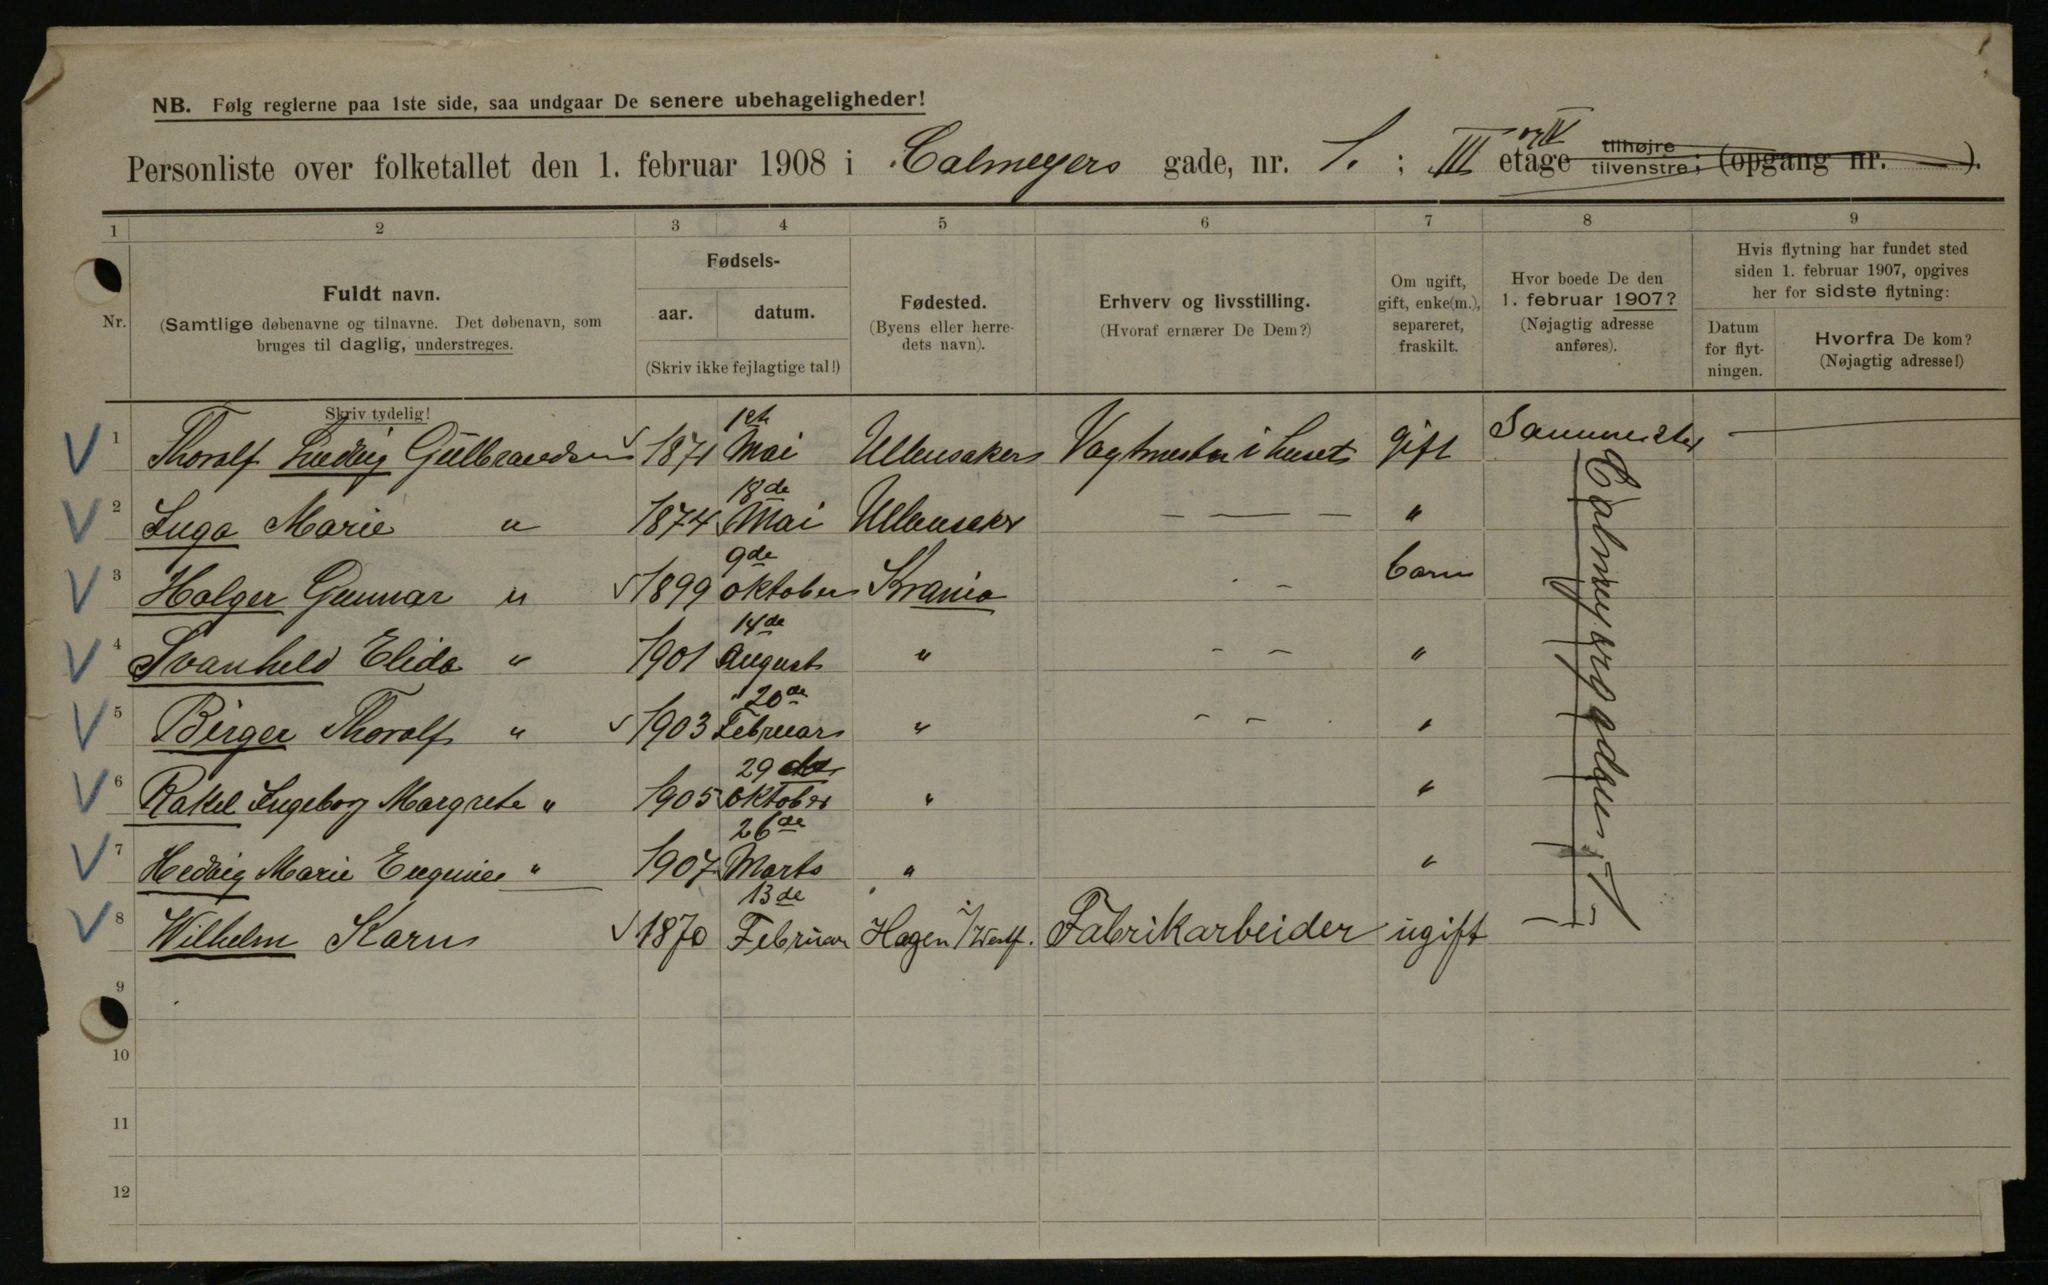 NB. Følg reglerne paa 1ste side, saa undgaar De senere ubehageligheder!
Personliste over folketallet den 1. februar 1908 i Calmeyers gade, nr. 1. ; III og IV etage tilhøjre tilvenstre; (opgang nr. — ).
1 2 3 4 5 6 7 8 9
Nr.
Fuldt navn.
(Samtlige døbenavne og tilnavne. Det døbenavn, som
bruges til daglig, understreges.
Skriv tydelig!
Fødsels-
aar. datum.
(Skriv ikke fejlagtige tal!)
Fødested.
(Byens eller herre-
dets navn).
Erhverv og livsstilling.
(Hvoraf ernærer De Dem?)
Om ugift,
gift, enke(m.),
separeret,
fraskilt.
Hvor boede De den
1. februar 1907?
(Nøjagtig adresse
anføres).
Hvis flytning har fundet sted
siden 1. februar 1907, opgives
her for sidste flytning:
Datum
for flyt-
ningen.
Hvorfra De kom?
(Nøjagtig adresse!)
1 Thoralf Ludvig Gulbrandsen 1871 1ste Mai Ullensaker Vagtmester i huset gift Samme sted —
2 Inga Marie " 1874 18de Mai Ullensaker — — — "
3 Holger Gunnar " 1899 9de oktober Krania - - barn
4 Svanhild Elida " 1901 14de August " - - "
5 Birger Thoralf " 1903 20de Februar " - - "
6 Rakel Ingeborg Margrete " 1905 29de oktober " "
7 Hedvig Marie Eugenie " 1907 26de Marts " "
8 Wilhelm Karn 1870 13de Februar Hagen i/Westf. Fabrikarbeider ugift —
Calmeyersgaden 1
9
10
11
12